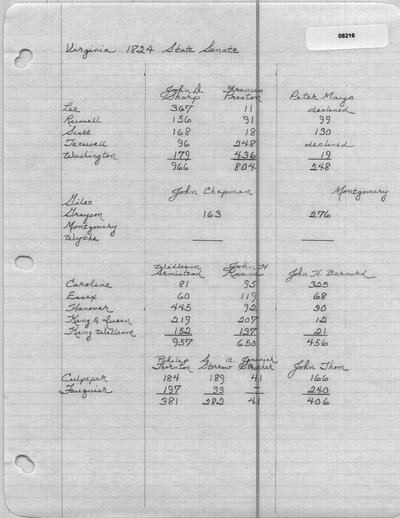 08216
Virginia 1824 State Senate
John D. Sharp Francis Preston Peter Mayo
Lee 367 11 declined
Russell 156 91 99
Scott 168 18 130
Tazewell 96 248 declined
Washington 179 436 19
966 804 248
John Chapman Montgomery
Giles
Grayson 163 276
Montgomery
Wythe
William Armistead John H Bernard
Caroline 81 95 325
Essex 60 119 68
Hanover 445 92 30
King & Queen 219 207 12
King William 152 137 21
957 650 456
Philip Thornton Jeremiah Strother John Thom
Culpeper 184 189 41 166
Fauquier 197 93 – 240
381 282 41 406